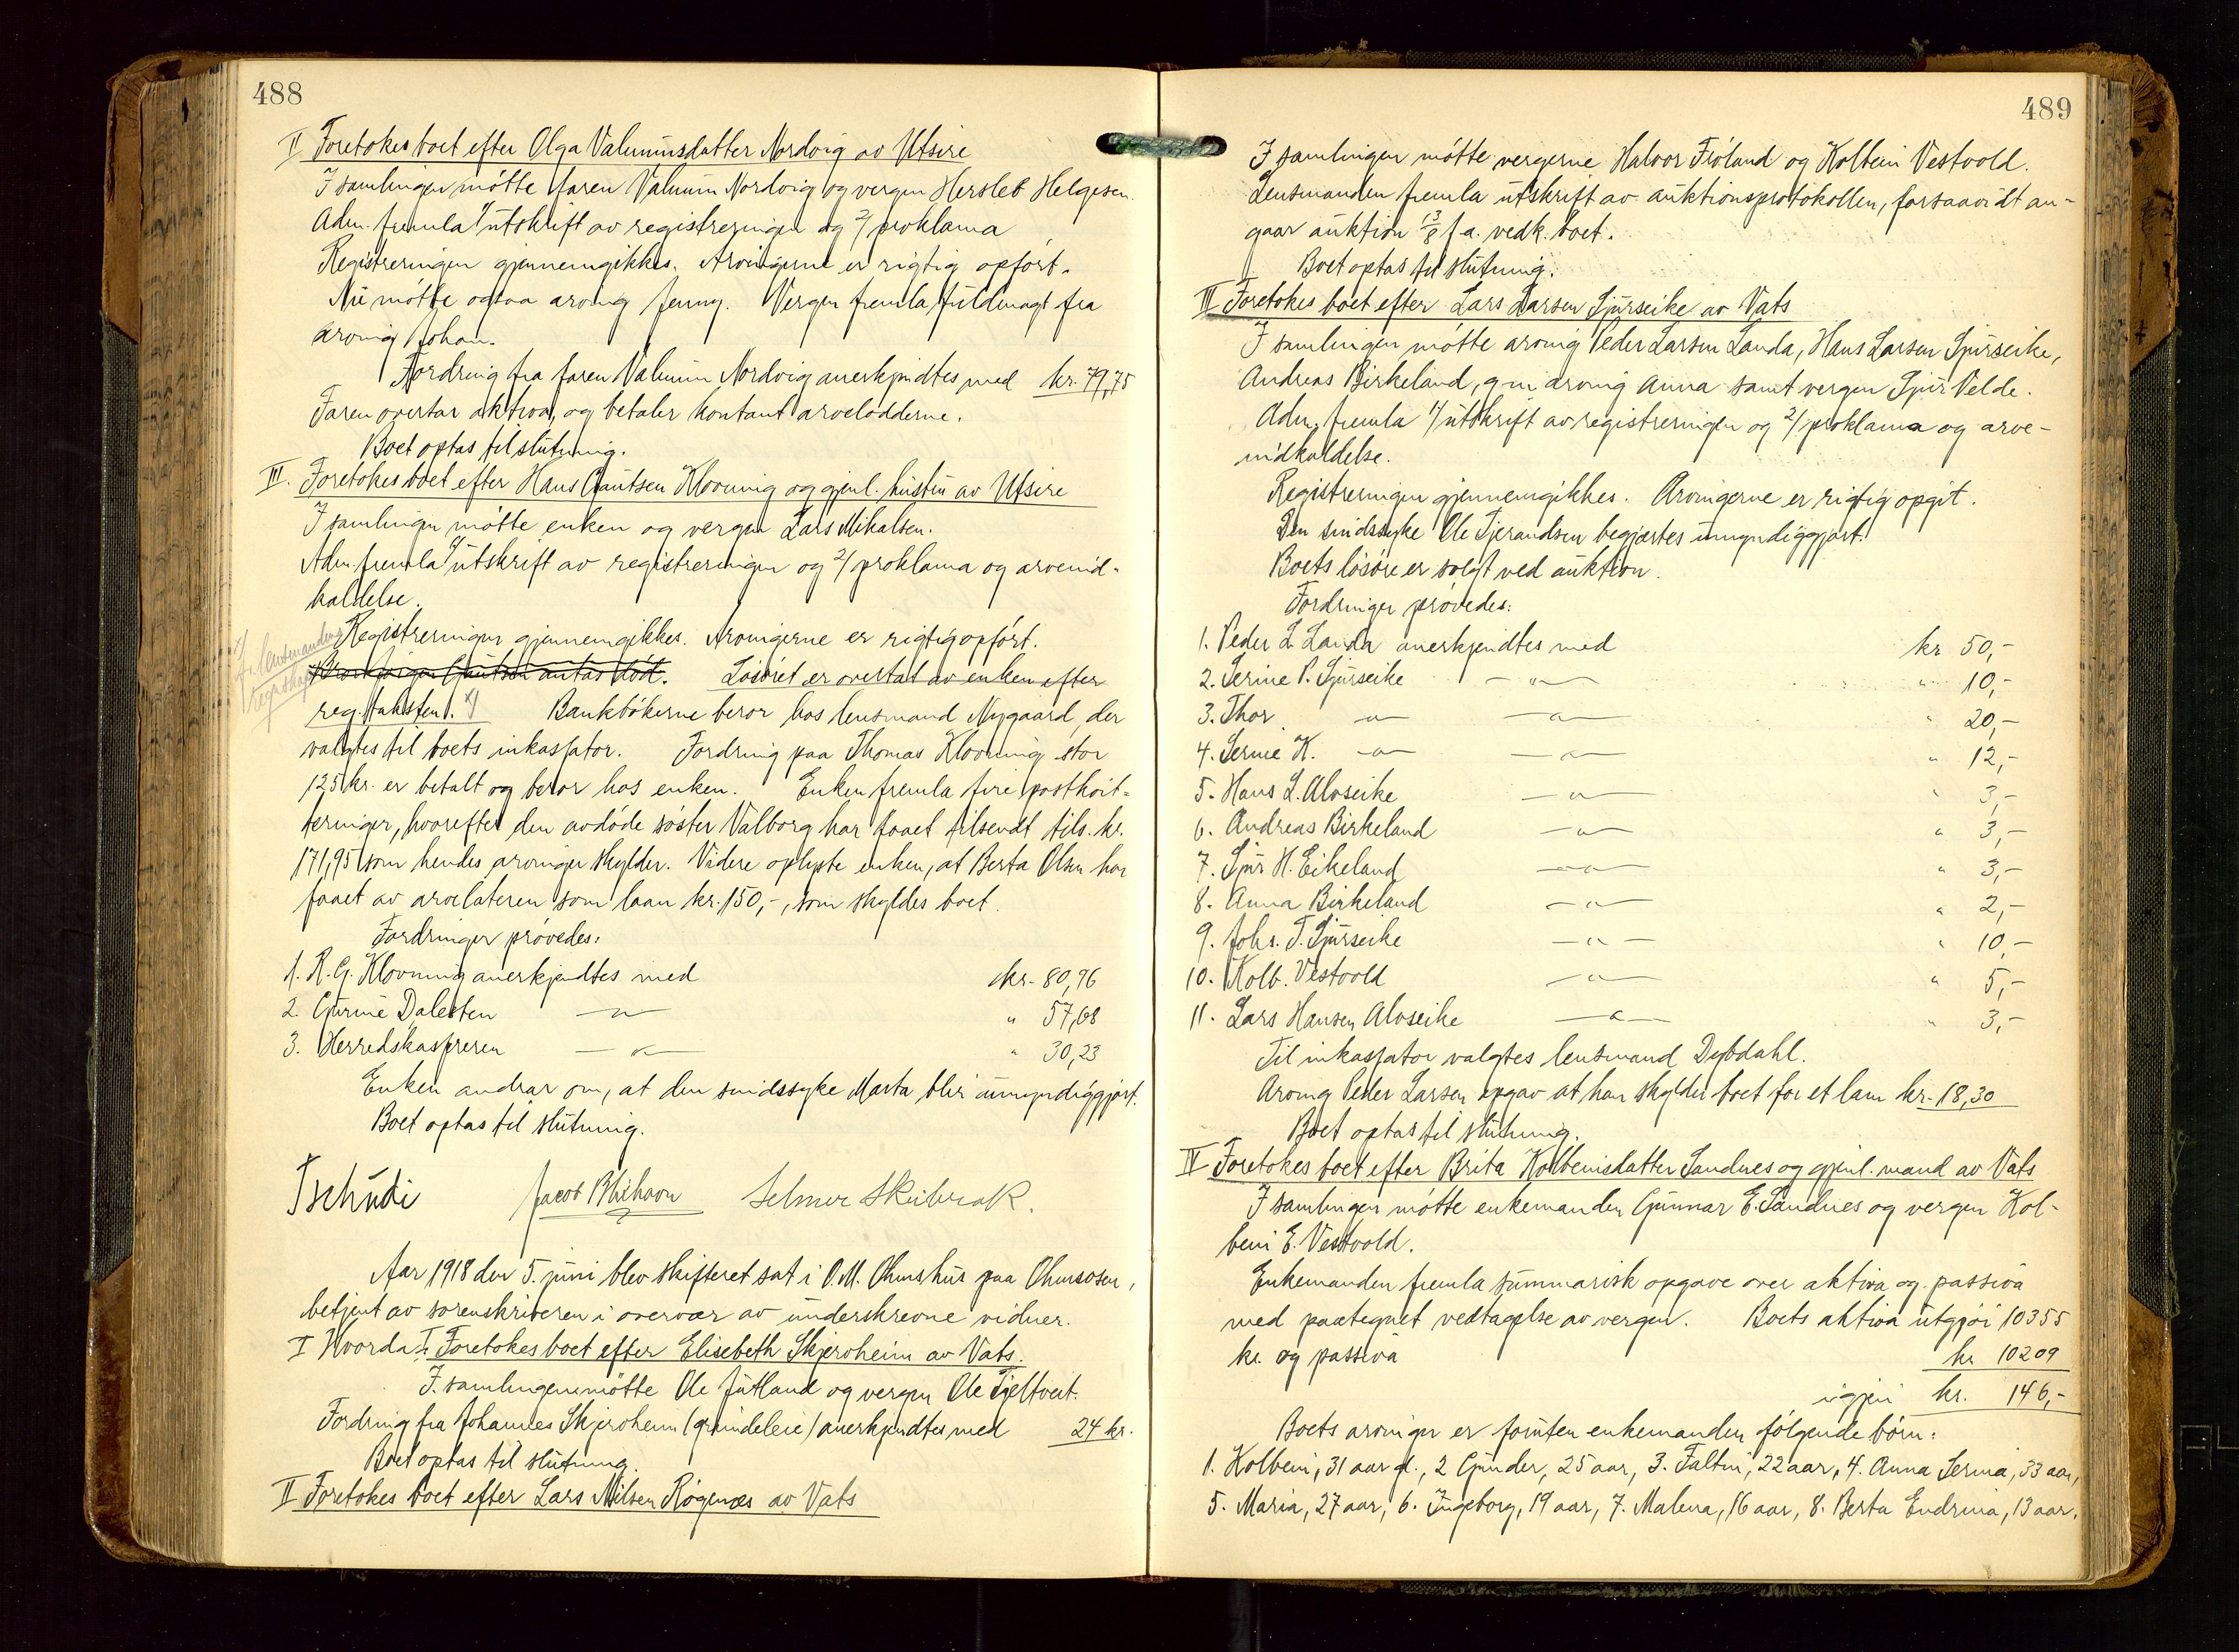 488
II Foretokes boet efter Olga Valuminsdatter Nordvig av Utsire
I samlingen møtte faren Valumin Nordvig og vergen Hersleb Helgesen.
Adm. fremla 1/ utskrift av registreringen og 2/ proklama
Registreringen gjennemgikkes. Arvingerne er rigtig opført.
Nu møtte ogsaa arving Jenny. Vergen fremla fuldmagt fra
arving Johan.
Fordring fra faren Valumin Nordvig anerkjendtes med kr. 79,75
Faren overtar aktiva, og betaler kontant arvelodderne.
Boet optas til slutning.
III. Foretokes boet efter Hans Gautsen Klovning og gjenl. hustru av Utsire
I samlingen møtte enken og vergen Lars Mikalsen.
Adm. fremla 1/ utskrift av registreringen og 2/ proklama og arveind-
kaldelse.
Registreringen gjennemgikkes. Arvingerne er rigtig opført.
x/ lensmandens
Gautsen antas død. Løsøret er overtat av enken efter
reg. taksten. x) Bankbøkerne beror hos lensmand Nygaard, der
valgtes til boets inkassator. Fordring paa Thomas Klovning stor
125 kr. er betalt og beror hos enken. Enken fremla fire postkvit-
teringer, hvorefter den avdøde søster Valborg har faaet tilsendt tils. kr.
171,95 som hendes arvinger skylder. Videre oplyste enken, at Berta Olsen har
faaet av arvelateren som laan kr. 150,-, som skyldes boet.
Fordringer prøvedes:
1. R. G. Klovning anerkjendtes med kr. 80,76
2. Gurine Dalesten —„— „ 57,68
3. Herredskassereren —„— „ 30,23
Enken andrar om, at den sindssyke Marta blir umyndiggjort.
Boet optas til slutning.
Tschudi Jacob B Selmer
Aar 1918 den 5. juni blev skifteret sat i O. M. Ohms hus paa Ohmsosen,
betjent av sorenskriveren i overvær av underskrevne vidner.
I Hvorda: I. Foretokes boet efter Elisebeth Skjeroheim av Vats.
I samlingen møtte Ole Jutland og vergen Ole Tjeltveit.
Fordring fra Johannes Skjeroheim (grundeleie) anerkjendtes med 24 kr.
Boet optas til slutning.
II Foretokes boet efter Lars Nilsen Røgenæs av Vats
489
I samlingen møtte vergerne Halvor Frøland og Kolbein Vestvold.
Lensmanden fremla utskrift av auktionsprotokollen, forsaavidt an-
gaar auktion 13/8 f.a. vedk. boet.
Boet optas til slutning.
III Foretokes boet efter Lars Larsen Sjurseike av Vats
I samlingen møtte arving Peder Larsen Landa, Hans Larsen Sjurseike,
Andreas Birkeland, g m arving Anna samt vergen Sjur Velde.
Adm. fremla 1/ utskrift av registreringen og 2/ proklama og arve-
indkaldelse.
Registreringen gjennemgikkes. Arvingerne er rigtig opgit.
Den sindssyke Ole Tjerandsen begjærtes umyndiggjort.
Boets løsøre er solgt ved auktion.
Fordringer prøvedes:
1. Peder L. Landa anerkjendtes med kr 50,-
2. Serine P. Sjurseike —„— „ 10,-
3. Thor —„— —„— „ 20,-
4. Serine K. —„— —„— „ 12,-
5. Hans L. Alvseike —„— „ 3,-
6. Andreas Birkeland —„— „ 3,-
7. Sjur H. Eikeland —„— „ 3,-
8. Anna Birkeland —„— „ 2,-
9. Johs. T. Sjurseike —„— „ 10,-
10. Kolb. Vestvold —„— „ 5,-
11. Lars Hansen Alvseike —„— „ 3,-
Til inkassator valgtes lensmand Dybdahl.
Arving Peder Larsen opgav at han skylder boet for et lam kr. 18,30
Boet optas til slutning.
IV Foretokes boet efter Brita Kolbeinsdatter Sandnes og gjenl. mand av Vats
I samlingen møtte enkemanden Gunnar E. Sandnes og vergen Kol-
bein E. Vestvold.
Enkemanden fremla summarisk opgave over aktiva og passiva
med paategnet vedtagelse av vergen. Boets aktiva utgjør 10355
kr. og passiva kr 10209
igjen kr. 146,-
Boets arvinger er foruten enkemanden følgende børn:
1. Kolbein, 31 aar gl., 2 Gunder, 25 aar, 3. Faltin, 22 aar, 4. Anna Serina, 33 aar,
5. Maria, 27 aar, 6. Ingeborg, 19 aar, 7. Malena, 16 aar, 8. Berta Endrina, 13 aar.